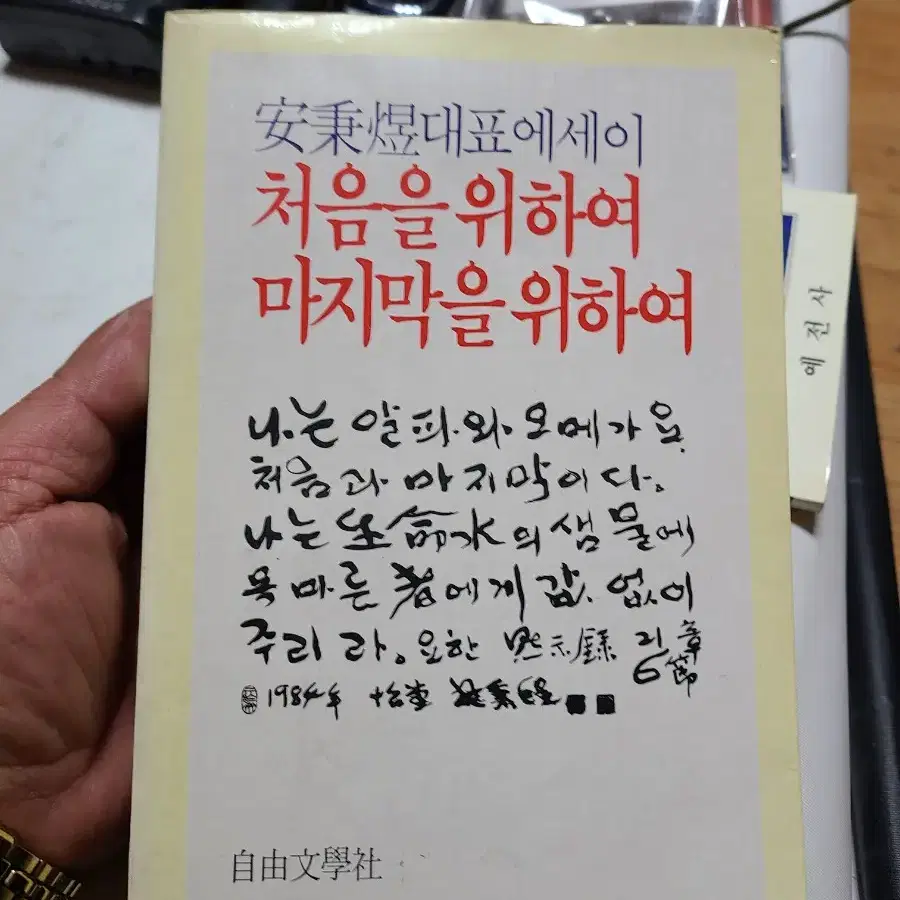 安秉煜대표에세이
처음을 위하여
마지막을 위하여
나는 알파와 오메가요
처음과 마지막이다.
나는 生命水의 샘물에
목마른 者에게 값 없이
주리라。요한 黙示錄 21章
6節
1984年
自由文學社
예전사